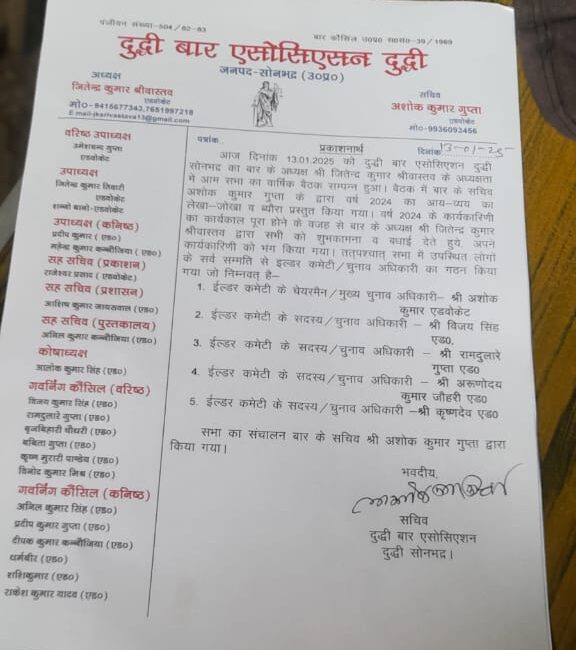 पंजीयन संख्या-504/82-83
बार कौंसिल उ०प्र० स०सं०-39/1969
दुद्धी बार एसोसिएसन दुद्धी
जनपद-सोनभद्र (उ०प्र०)
अध्यक्ष
जितेन्द्र कुमार श्रीवास्तव
एडवोकेट
मो०-9415677343,7651997218
E.mail-jksrivastava13@gmail.com
सचिव
अशोक कुमार गुप्ता
एडवोकेट
मो०-9936093456
वरिष्ठ उपाध्यक्ष
उमेशचन्द गुप्ता
एडवोकेट
उपाध्यक्ष
जितेन्द्र कुमार तिवारी
एडवोकेट
शन्नो बानो-एडवोकेट
उपाध्यक्ष (कनिष्ठ)
प्रदीप कुमार (ए०)
महेन्द्र कुमार कन्नौजिया (ए०)
सह सचिव (प्रकाशन)
राजेश्वर प्रसाद (एडवोकेट)
सह सचिव (प्रशासन)
आशिष कुमार जायसवाल (एड०)
सह सचिव (पुस्तकालय)
अनिल कुमार कन्नौजिया (एड०)
कोषाध्यक्ष
आलोक कुमार सिंह (एड०)
गवर्निंग कौंसिल (वरिष्ठ)
विजय कुमार सिंह (एड०)
रामदुलारे गुप्ता (एड०)
बृजबिहारी चौधरी (एड०)
बबिता गुप्ता (एड०)
कृष्ण मुरारी पाण्डेय (एड०)
विनोद कुमार मिश्र (एड०)
गवर्निंग कौंसिल (कनिष्ठ)
अनिल कुमार सिंह (एड०)
प्रदीप कुमार गुप्ता (एड०)
दीपक कुमार कन्नौजिया (एड०)
धर्मबीर (एड०)
शशिकुमार (एड०)
राकेश कुमार यादव (एड०)
पत्रांक
प्रकाशनार्थ
दिनांक 13-01-25
आज दिनांक 13.01.2025 को दुद्धी बार एसोसिएशन दुद्धी
सोनभद्र का बार के अध्यक्ष श्री जितेन्द्र कुमार श्रीवास्तव के अध्यक्षता
में आम सभा का वार्षिक बैठक सम्पन्न हुआ। बैठक में बार के सचिव
अशोक कुमार गुप्ता के द्वारा वर्ष 2024 का आय-व्यय का
लेखा-जोखा व ब्यौरा प्रस्तुत किया गया। वर्ष 2024 के कार्यकारिणी
का कार्यकाल पूरा होने के वजह से बार के अध्यक्ष श्री जितेन्द्र कुमार
श्रीवास्तव द्वारा सभी को शुभकामना व बधाई देते हुये, अपने
कार्यकारिणी को भंग किया गया। ततपश्चात् सभा में उपस्थित लोगों
के सर्व सम्मति से इल्डर कमेटी/चुनाव अधिकारी का गठन किया
गया जो निम्नवत् है–
1. ईल्डर कमेटी के चेयरमैन/मुख्य चुनाव अधिकारी- श्री अशोक
कुमार एडवोकेट
2. ईल्डर कमेटी के सदस्य/चुनाव अधिकारी - श्री विजय सिंह
एड0.
3. ईल्डर कमेटी के सदस्य/चुनाव अधिकारी - श्री रामदुलारे
गुप्ता एड0
4. ईल्डर कमेटी के सदस्य/चुनाव अधिकारी - श्री अरूणोदय
कुमार जौहरी एड0
5. ईल्डर कमेटी के सदस्य/चुनाव अधिकारी -श्री कृष्णदेव एड0
सभा का संचालन बार के सचिव श्री अशोक कुमार गुप्ता द्वारा
किया गया।
भवदीय,
सचिव
दुद्धी बार एसोसिएशन
दुद्धी सोनभद्र।